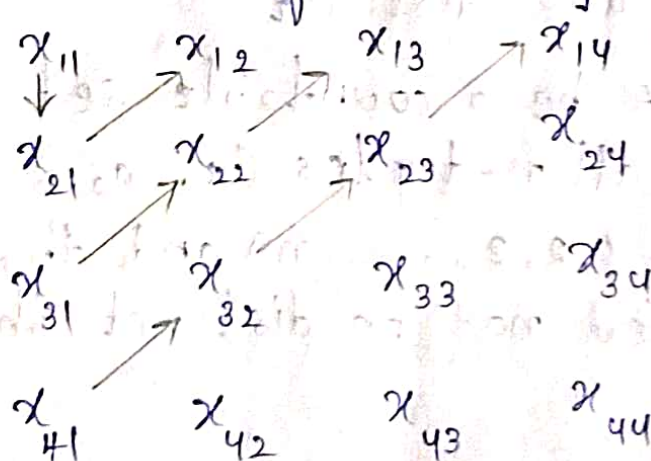 x11 x12 x13 x14
x21 x22 x23 x24
x31 x32 x33 x34
x41 x42 x43 x44